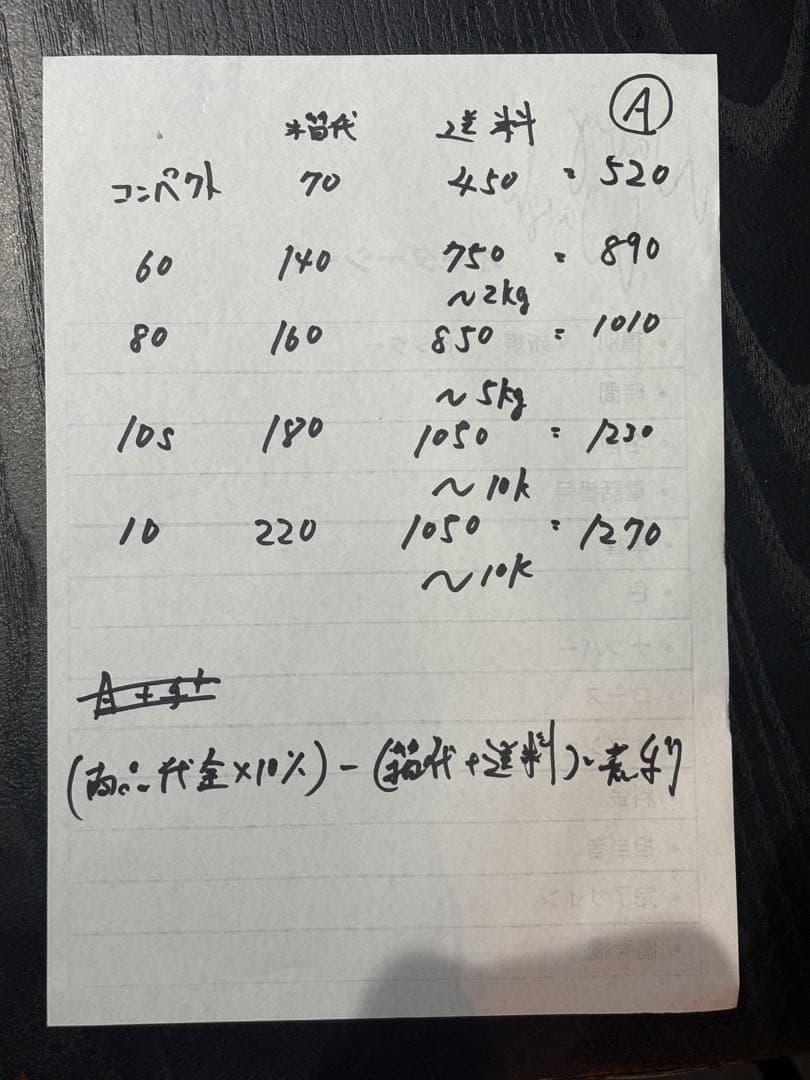 Ⓐ
箱代 送料
コンペクト 70 450 = 520
60 140 750 = 890
~2kg
80 160 850 = 1010
~5kg
10s 180 1050 = 1230
~10k
10 220 1050 = 1270
~10k
(商品代金×10%)-(箱代+送料)=